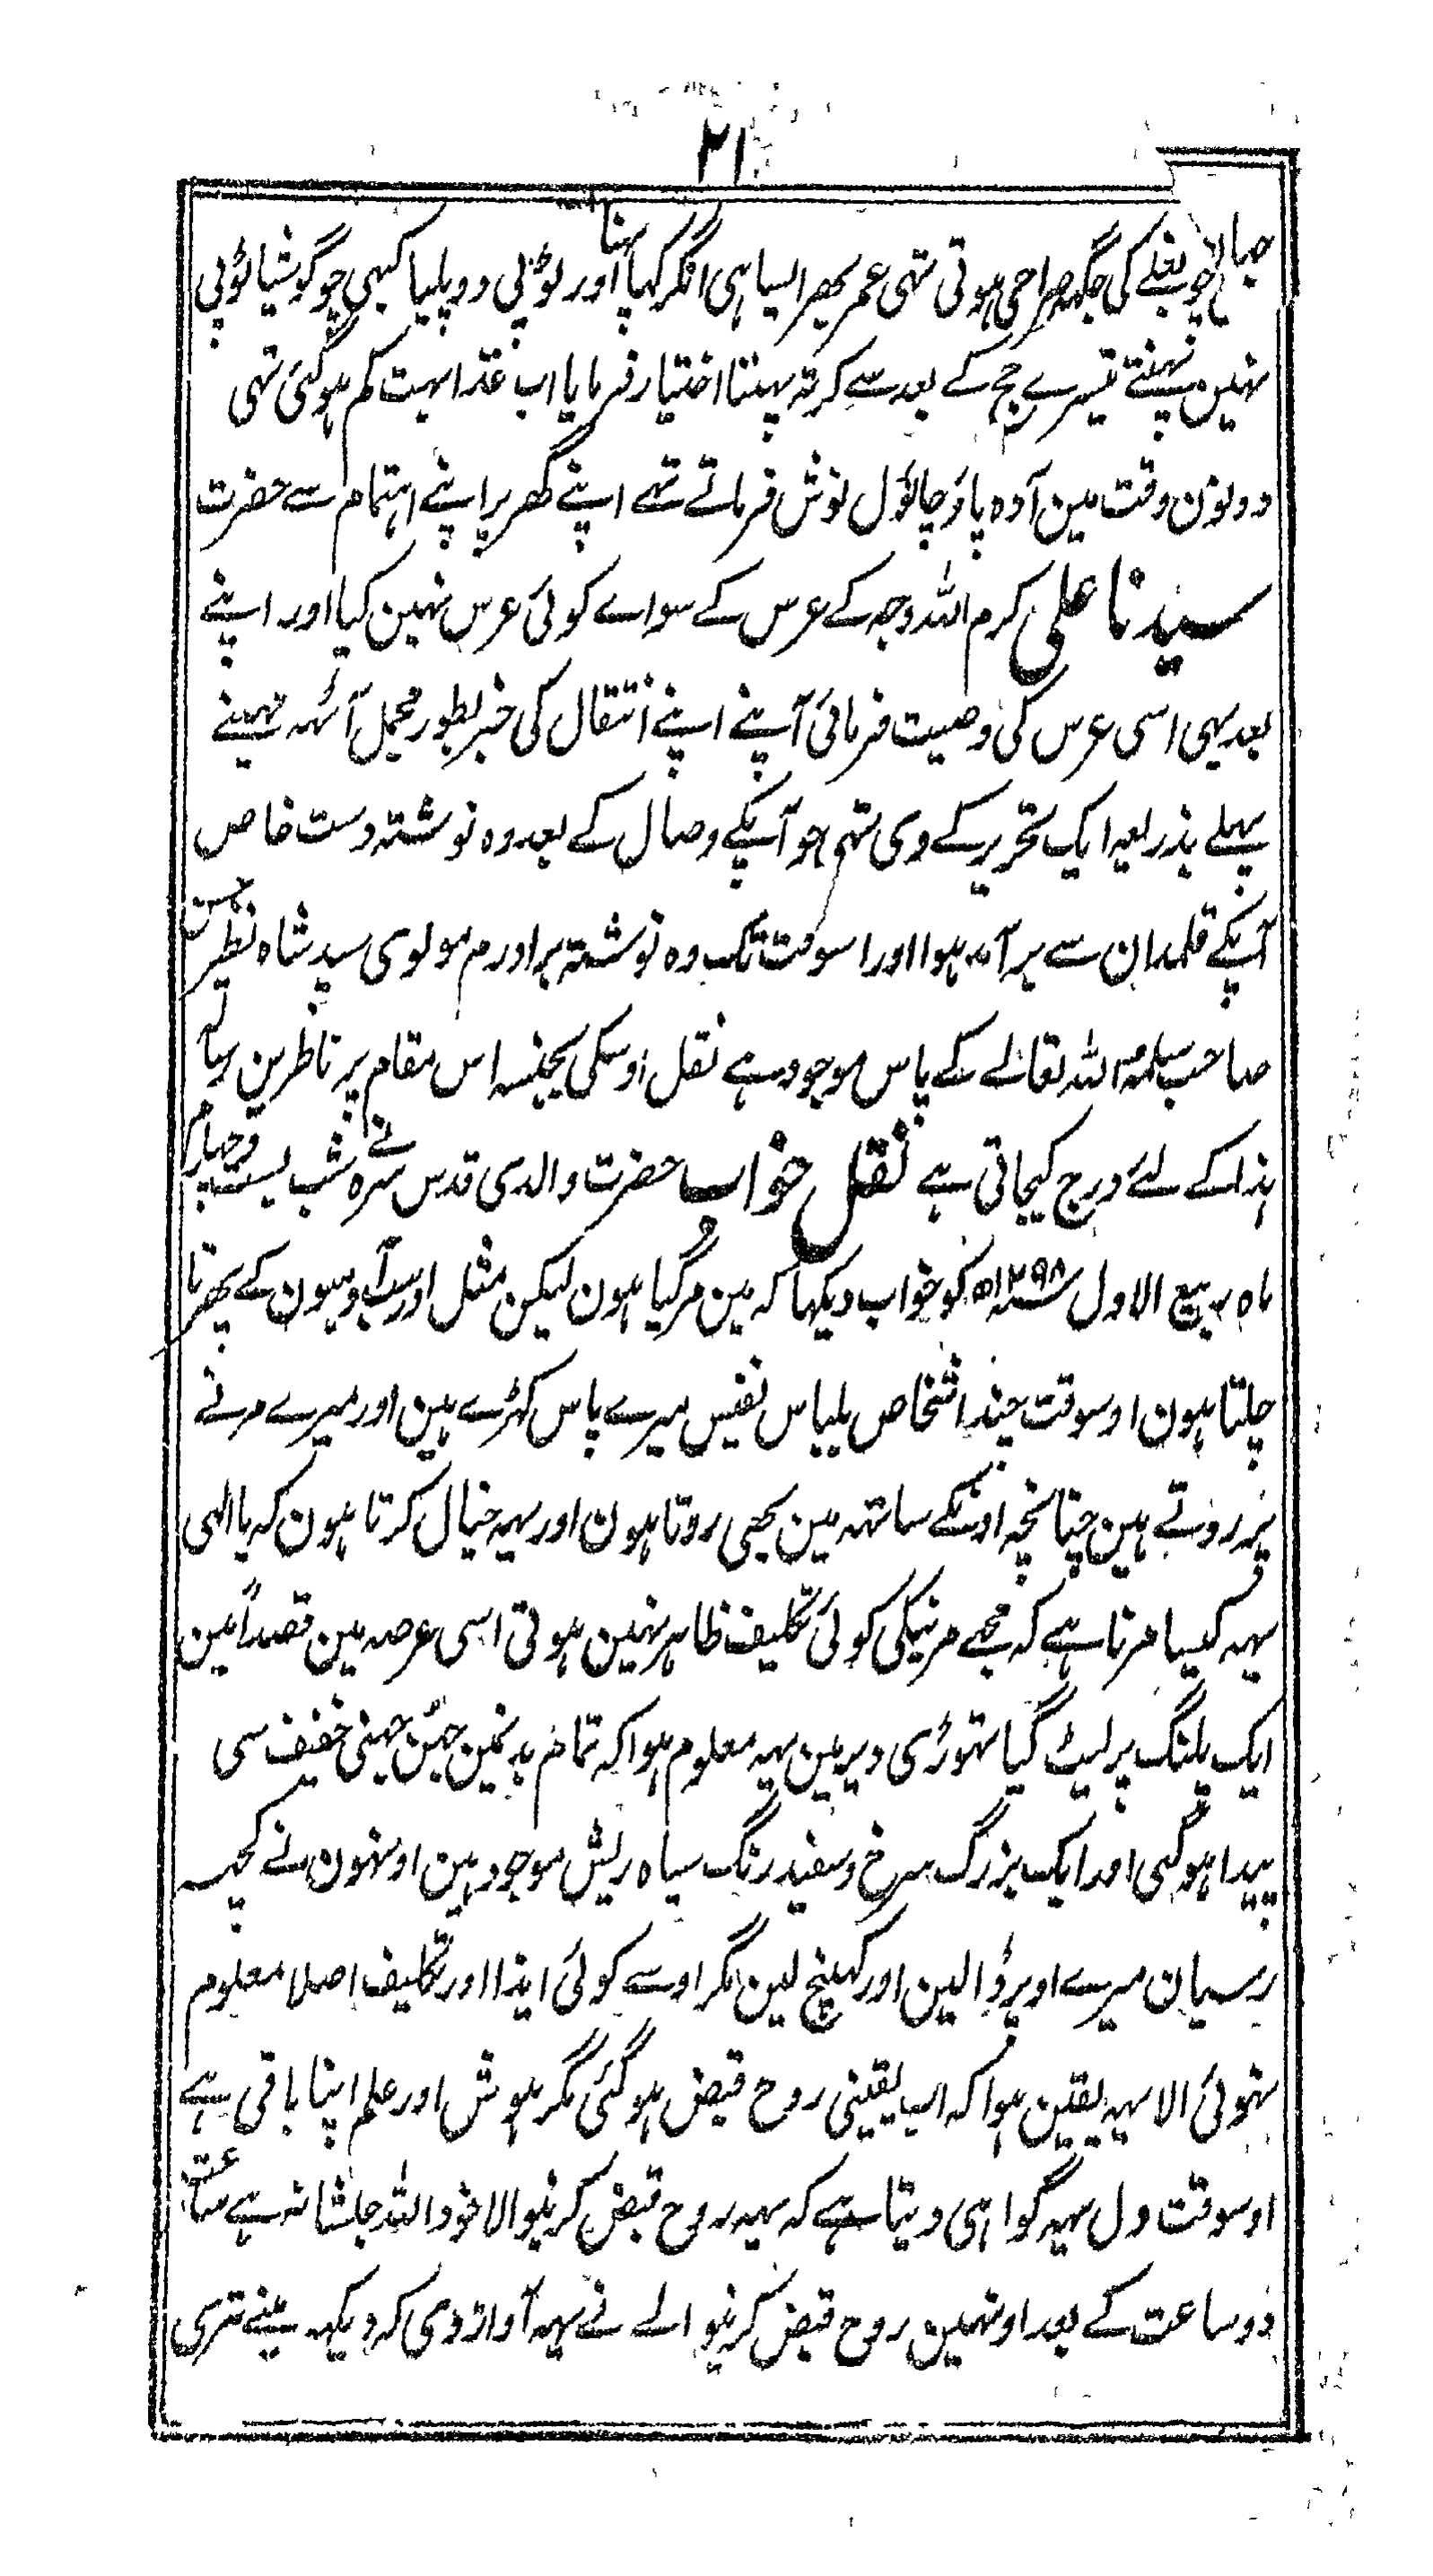 ۲۱
چوبغلے کی جگہ صراحی ہوتی تہی عمر بھر ایسا ہی انگرکہا پہنا اور ٹوپی دوپلیا کبہی چوگوشیا ٹوپی
نہین پہنتے تیسرے حج کے بعد سے کرتہ پہننا اختیار فرمایا اب غذا بہت کم ہوگئی تہی
دونون وقت مین آدہ پاؤ چانول نوش فرماتے تہے اپنے گھر پر اپنے اہتمام سے حضرت
سیدنا علی کرم اللہ وجہ کے عرس کے سواے کوئی عرس نہین کیا اور اپنے
بعد بہی اسی عرس کی وصیت فرمائی آپنے اپنے انتقال کی خبر بطور مجمل آٹہہ مہینے
پہلے بذریعہ ایک تحریر کے دی تہی جو آپکے وصال کے بعد وہ نوشتہ دست خاص
آپکے قلمدان سے برآمد ہوا اور اسوقت تک وہ نوشتہ برادرم مولوی سید شاہ نظیر حسن
صاحب سلمہ اللہ تعالے کے پاس موجود ہے نقل اوسکی بجنسہ اس مقام پر ناظرین رسالہ
ہذا کے لئے درج کیجاتی ہے نقل خواب حضرت والدی قدس سرہ نے شب بست وچہارم
ماہ ربیع الاول ۱۲۹۸ھ کو خواب دیکہا کہ مین مرگیا ہون لیکن مثل اور آدمیون کے پھرتا
چلتا ہون اوسوقت چند اشخاص بلباس نفیس میرے پاس کہڑے ہین اور میرے مرنے
پر روتے ہین چنانچہ اونکے ساتہہ مین بھی روتا ہون اور یہہ خیال کرتا ہون کہ یا الہی
یہہ کیسا مرنا ہے کہ مجھے مرنیکی کوئی تکلیف ظاہر نہین ہوتی اسی عرصہ مین قصداً مین
ایک پلنگ پر لیٹ گیا تہوڑی دیر مین یہہ معلوم ہوا کہ تمام بدنمین جھن جہنی خفیف سی
پیدا ہوگئی اور ایک بزرگ سرخ وسفید رنگ سیاہ ریش موجود ہین اونہون نے کچہہ
رسیان میرے اوپر ڈالین اور کہینچ لین مگر اوسے کوئی ایذا اور تکلیف اصلا معلوم
نہوئی الا یہہ یقین ہوا کہ اب یقینی روح قبض ہوگئی مگر ہوش اور علم اپنا باقی ہے
اوسوقت دل یہہ گواہی دیتا ہے کہ یہہ روح قبض کرنیوالا خود اللہ جلشانہ ہے ساعت
دو ساعت کے بعد اونہین روح قبض کرنیوالے نے یہہ آواز دی کہ دیکہہ مینے تیری